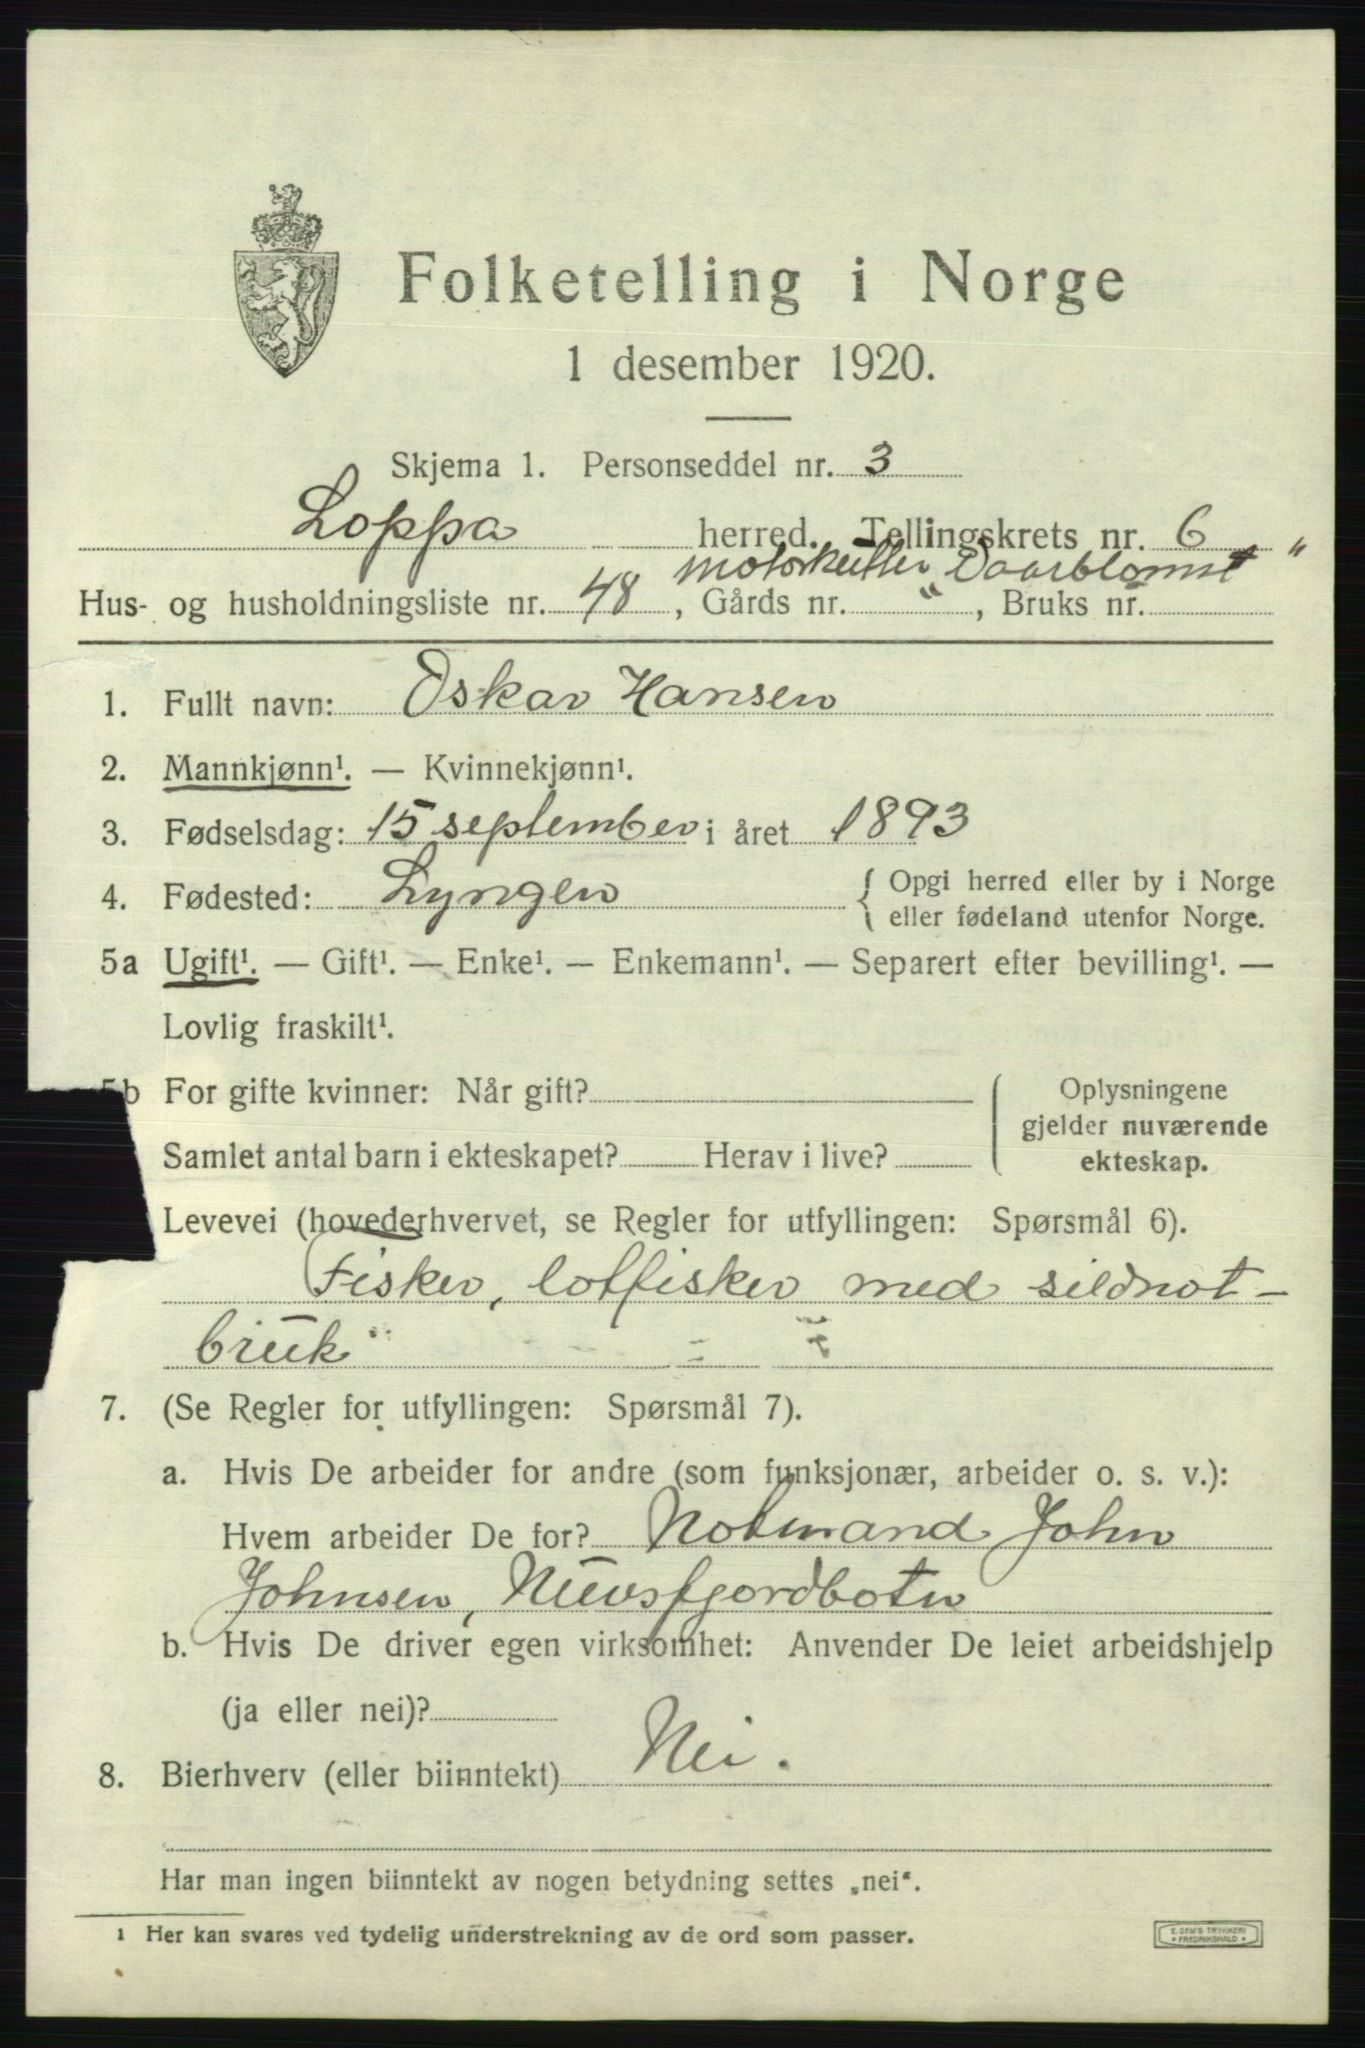 Folketelling i Norge
1 desember 1920.
Skjema 1. Personseddel nr. 3
Loppa herred. Tellingskrets nr. 6
motorkutter „Vaarblomst“
Hus- og husholdningsliste nr. 48, Gårds nr. , Bruks nr.
1. Fullt navn: Oskar Hansen
2. Mannkjønn¹. — Kvinnekjønn¹.
3. Fødselsdag: 15 september i året 1893
4. Fødested: Lyngen { Opgi herred eller by i Norge
eller fødeland utenfor Norge.
5a Ugift¹. — Gift¹. — Enke¹. — Enkemann¹. — Separert efter bevilling¹. —
Lovlig fraskilt¹.
5b For gifte kvinner: Når gift? Oplysningene
gjelder nuværende
Samlet antal barn i ekteskapet? Herav i live? ekteskap.
Levevei (hovederhvervet, se Regler for utfyllingen: Spørsmål 6).
Fisker, lotfisker med sildnot-
bruk
7. (Se Regler for utfyllingen: Spørsmål 7).
a. Hvis De arbeider for andre (som funksjonær, arbeider o. s. v.):
Hvem arbeider De for? Notmand John
Johnsen, Nuvsfjordbotn
b. Hvis De driver egen virksomhet: Anvender De leiet arbeidshjelp
(ja eller nei)?
8. Bierhverv (eller biinntekt) Nei.
Har man ingen biinntekt av nogen betydning settes „nei“.
¹ Her kan svares ved tydelig understrekning av de ord som passer.
E. SEM'S TRYKKERI
* FREDRIKSHALD *